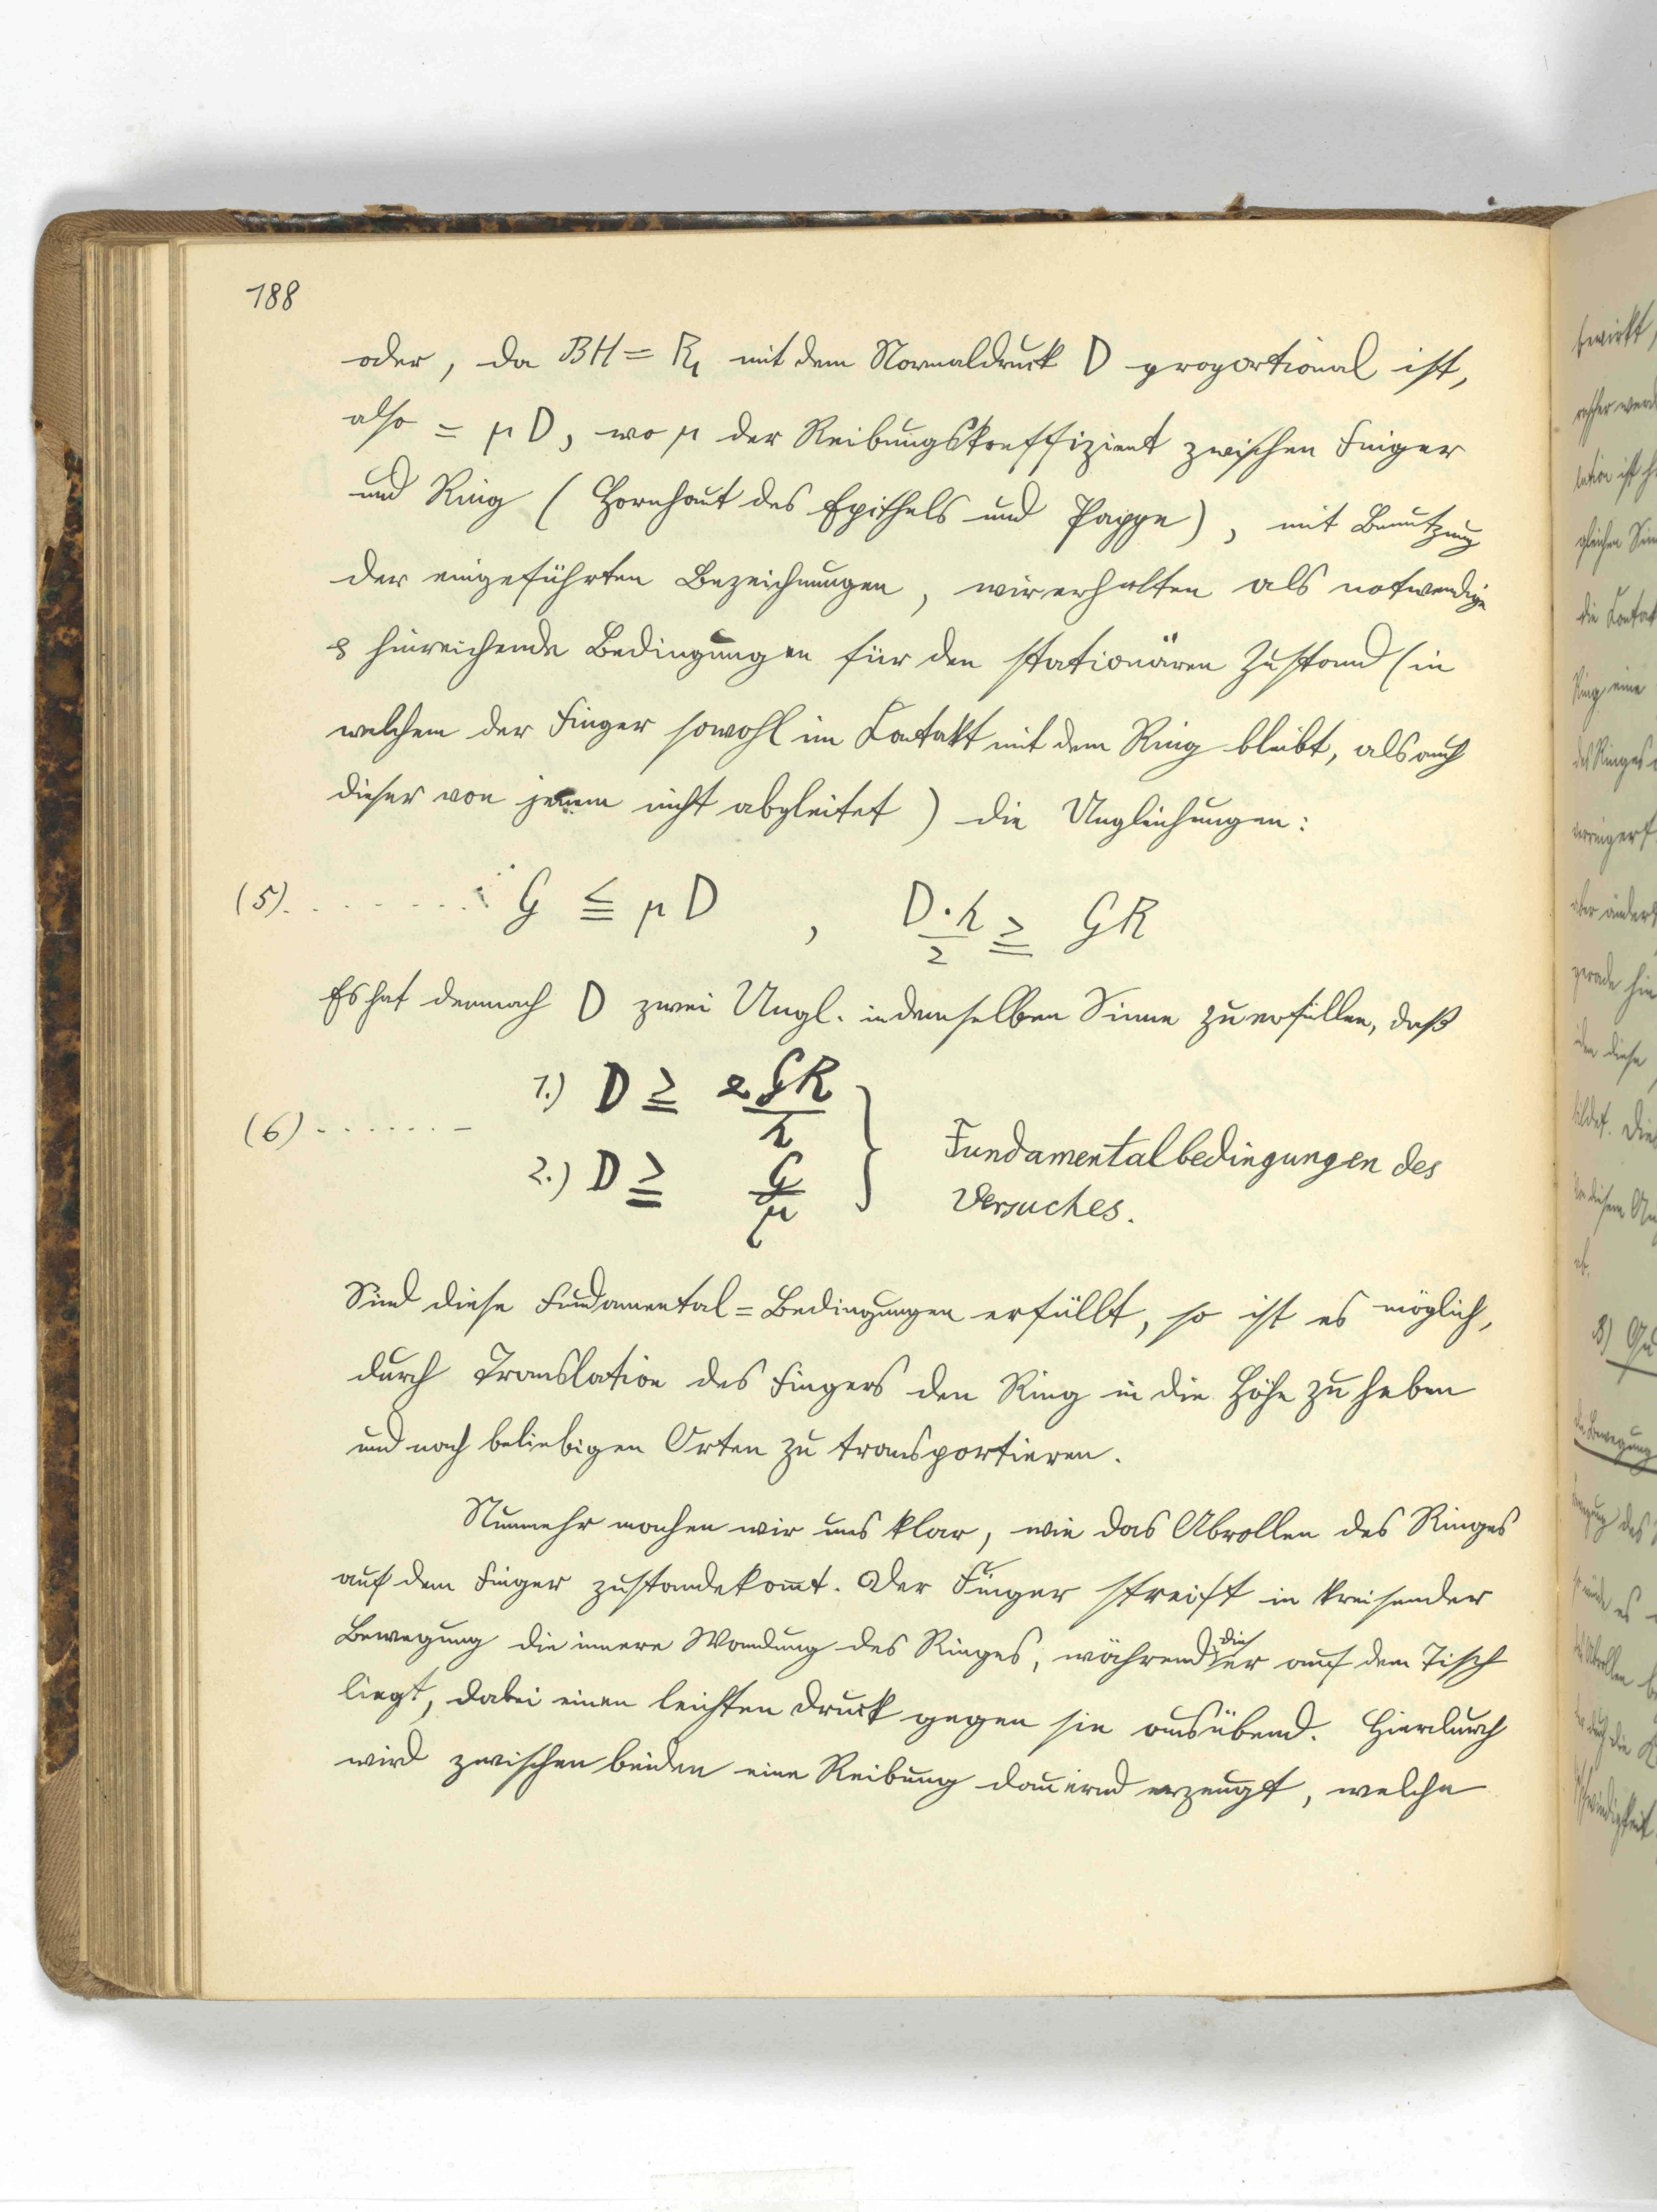 188
oder, da BH = R₁ mit dem Normaldruck D proportional ist,
also = μD, wo μ der Reibungskoeffizient zwischen Finger
und Ring (Hornhaut des Epithels und Pappe), mit Benutzung
der eingeführten Bezeichnungen, wir erhalten als notwendige
& hinreichende Bedingungen für den stationären Zustand (in
welchem der Finger sowohl im Kontakt mit dem Ring bleibt, als auch
dieser von jenem nicht abgleitet) die Ungleichungen:
(5). . . . . . . . G ≦ μD , D·h/2 ≧ GR
Es hat demnach D zwei Ungl. in demselben Sinne zu erfüllen, daß
1.) D ≧ 2GR/h
(6) . . . . . . –
2.) D ≧ G/μ
} Fundamentalbedingungen des
Versuches.
Sind diese Fundamental=Bedingungen erfüllt, so ist es möglich,
durch Translation des Fingers den Ring in die Höhe zu heben
und nach beliebigen Orten zu transportieren.
Nunmehr machen wir uns klar, wie das Abrollen des Ringes
auf dem Finger zustandekom̅t. Der Finger streift in kreisender
Bewegung die innere Wandung des Ringes, während dieser auf dem Tisch
liegt, dabei einen leichten Druck gegen sie ausübend. Hierdurch
wird zwischen beiden eine Reibung dauernd erzeugt, welche
bewirkt,
lation ist
gleichen
die Kontakt
Ring eine
des Ringes
verringert
aber ändert
gerade
diese
bildet. Die
B)
Bewegung
des
es
Abrollen
durch die